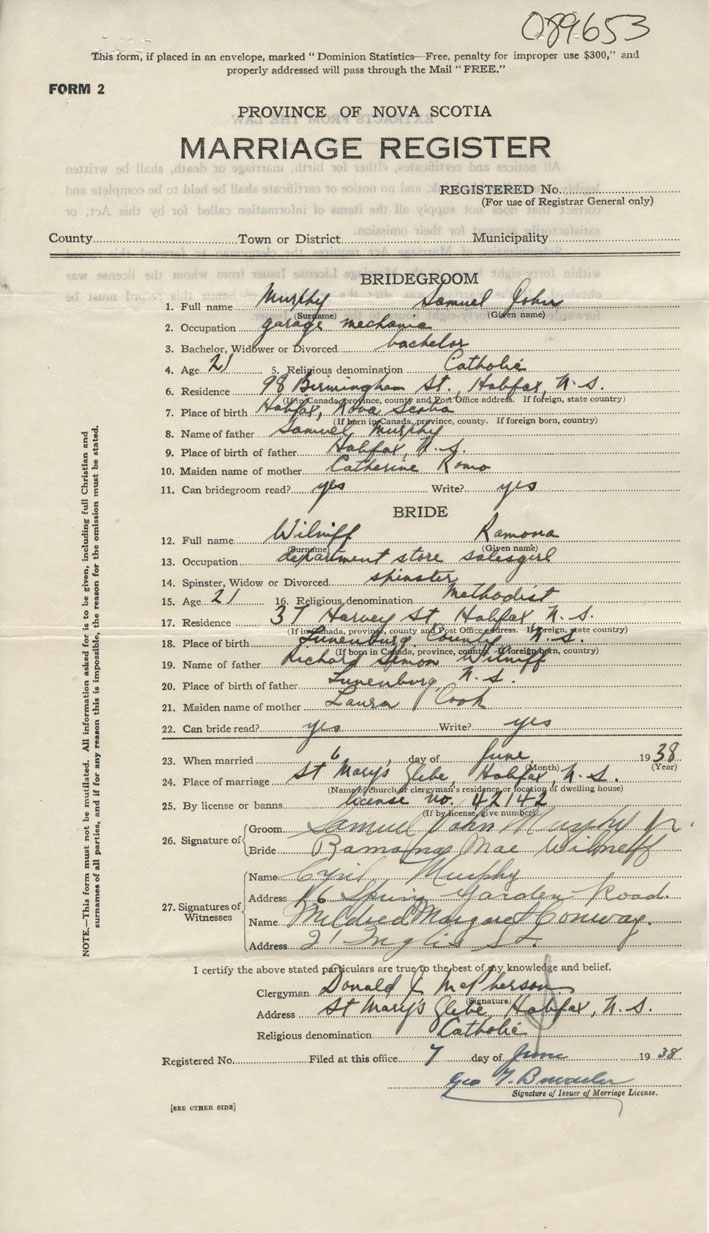 089653
This form, if placed in an envelope, marked "Dominion Statistics—Free, penalty for improper use $300," and
properly addressed will pass through the Mail "FREE."
FORM 2
PROVINCE OF NOVA SCOTIA
MARRIAGE REGISTER
REGISTERED No.
(For use of Registrar General only)
County Town or District Municipality
BRIDEGROOM
1. Full name Murphy Samuel John
(Surname) (Given name)
2. Occupation garage mechanic
3. Bachelor, Widower or Divorced bachelor
4. Age 21 5. Religious denomination Catholic
6. Residence 98 Birmingham St., Halifax, N.S.
(If in Canada, province, county and Post Office address. If foreign, state country)
7. Place of birth Halifax, Nova Scotia
(If born in Canada, province, county. If foreign born, country)
8. Name of father Samuel Murphy
9. Place of birth of father Halifax, N.S.
10. Maiden name of mother Catherine Romo
11. Can bridegroom read? yes Write? yes
BRIDE
12. Full name Wilniff Ramona
(Surname) (Given name)
13. Occupation department store salesgirl
14. Spinster, Widow or Divorced spinster
15. Age 21 16. Religious denomination Methodist
17. Residence 37 Harvey St. Halifax N.S.
(If in Canada, province, county and Post Office address. If foreign, state country)
18. Place of birth Lunenburg County N.S.
(If born in Canada, province, county. If foreign born, country)
19. Name of father Richard Simon Wilniff
20. Place of birth of father Lunenburg, N.S.
21. Maiden name of mother Laura Cook
22. Can bride read? yes Write? yes
23. When married 6 day of June 1938
(Month) (Year)
24. Place of marriage St Mary's Glebe, Halifax, N.S.
(Name of church or clergyman's residence or location of dwelling house)
25. By license or banns license no. 42142
(If by license, give number)
26. Signature of Groom Samuel John Murphy Jr.
Bride Ramona Mae Wilneff
27. Signatures of Witnesses
Name Cyril Murphy
Address Spring Garden Road.
Name Mildred Margaret Conway.
Address 21 Inglis St.
I certify the above stated particulars are true to the best of my knowledge and belief.
Clergyman Donald J. McPherson
(Signature)
Address St Mary's Glebe, Halifax, N.S.
Religious denomination Catholic
Registered No. Filed at this office 7 day of June 1938
Geo
Signature of Issuer of Marriage License.
[SEE OTHER SIDE]
NOTE.—This form must not be mutilated. All information asked for is to be given, including full Christian and
surnames of all parties, and if for any reason this is impossible, the reason for the omission must be stated.